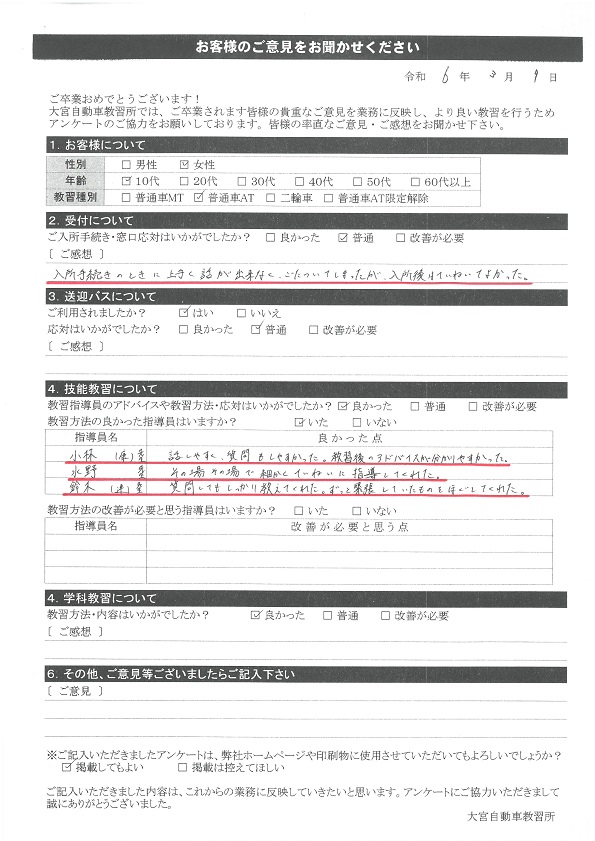 お客様のご意見をお聞かせください
令和 6 年 3 月 9 日
ご卒業おめでとうございます！
大宮自動車教習所では、ご卒業されます皆様の貴重なご意見を業務に反映し、より良い教習を行うため
アンケートのご協力をお願いしております。皆様の率直なご意見・ご感想をお聞かせ下さい。
1. お客様について
性別 □ 男性 ☑ 女性
年齢 ☑ 10代 □ 20代 □ 30代 □ 40代 □ 50代 □ 60代以上
教習種別 □ 普通車MT ☑ 普通車AT □ 二輪車 □ 普通車AT限定解除
2. 受付について
ご入所手続き・窓口応対はいかがでしたか？ □ 良かった ☑ 普通 □ 改善が必要
〔 ご感想 〕
入所手続きのときに上手く話が出来なく、ごたついてしまったが、入所後はていねいでよかった。
3. 送迎バスについて
ご利用されましたか？ ☑ はい □ いいえ
応対はいかがでしたか？ □ 良かった ☑ 普通 □ 改善が必要
〔 ご感想 〕
4. 技能教習について
教習指導員のアドバイスや教習方法・応対はいかがでしたか？ ☑ 良かった □ 普通 □ 改善が必要
教習方法の良かった指導員はいますか？ ☑ いた □ いない
指導員名 良かった点
小林 話しやすく、質問もしやすかった。教習後のアドバイスが分かりやすかった。
水野 その場その場で細かくていねいに指導してくれた。
鈴木 質問してもしっかり教えてくれた。ずっと緊張していたものをほぐしてくれた。
教習方法の改善が必要と思う指導員はいますか？ □ いた □ いない
指導員名 改善が必要と思う点
4. 学科教習について
教習方法・内容はいかがでしたか？ ☑ 良かった □ 普通 □ 改善が必要
〔 ご感想 〕
6. その他、ご意見等ございましたらご記入下さい
〔 ご意見 〕
※ご記入いただきましたアンケートは、弊社ホームページや印刷物に使用させていただいてもよろしいでしょうか？
☑ 掲載してもよい □ 掲載は控えてほしい
ご記入いただきました内容は、これからの業務に反映していきたいと思います。アンケートにご協力いただきまして
誠にありがとうございました。
大宮自動車教習所